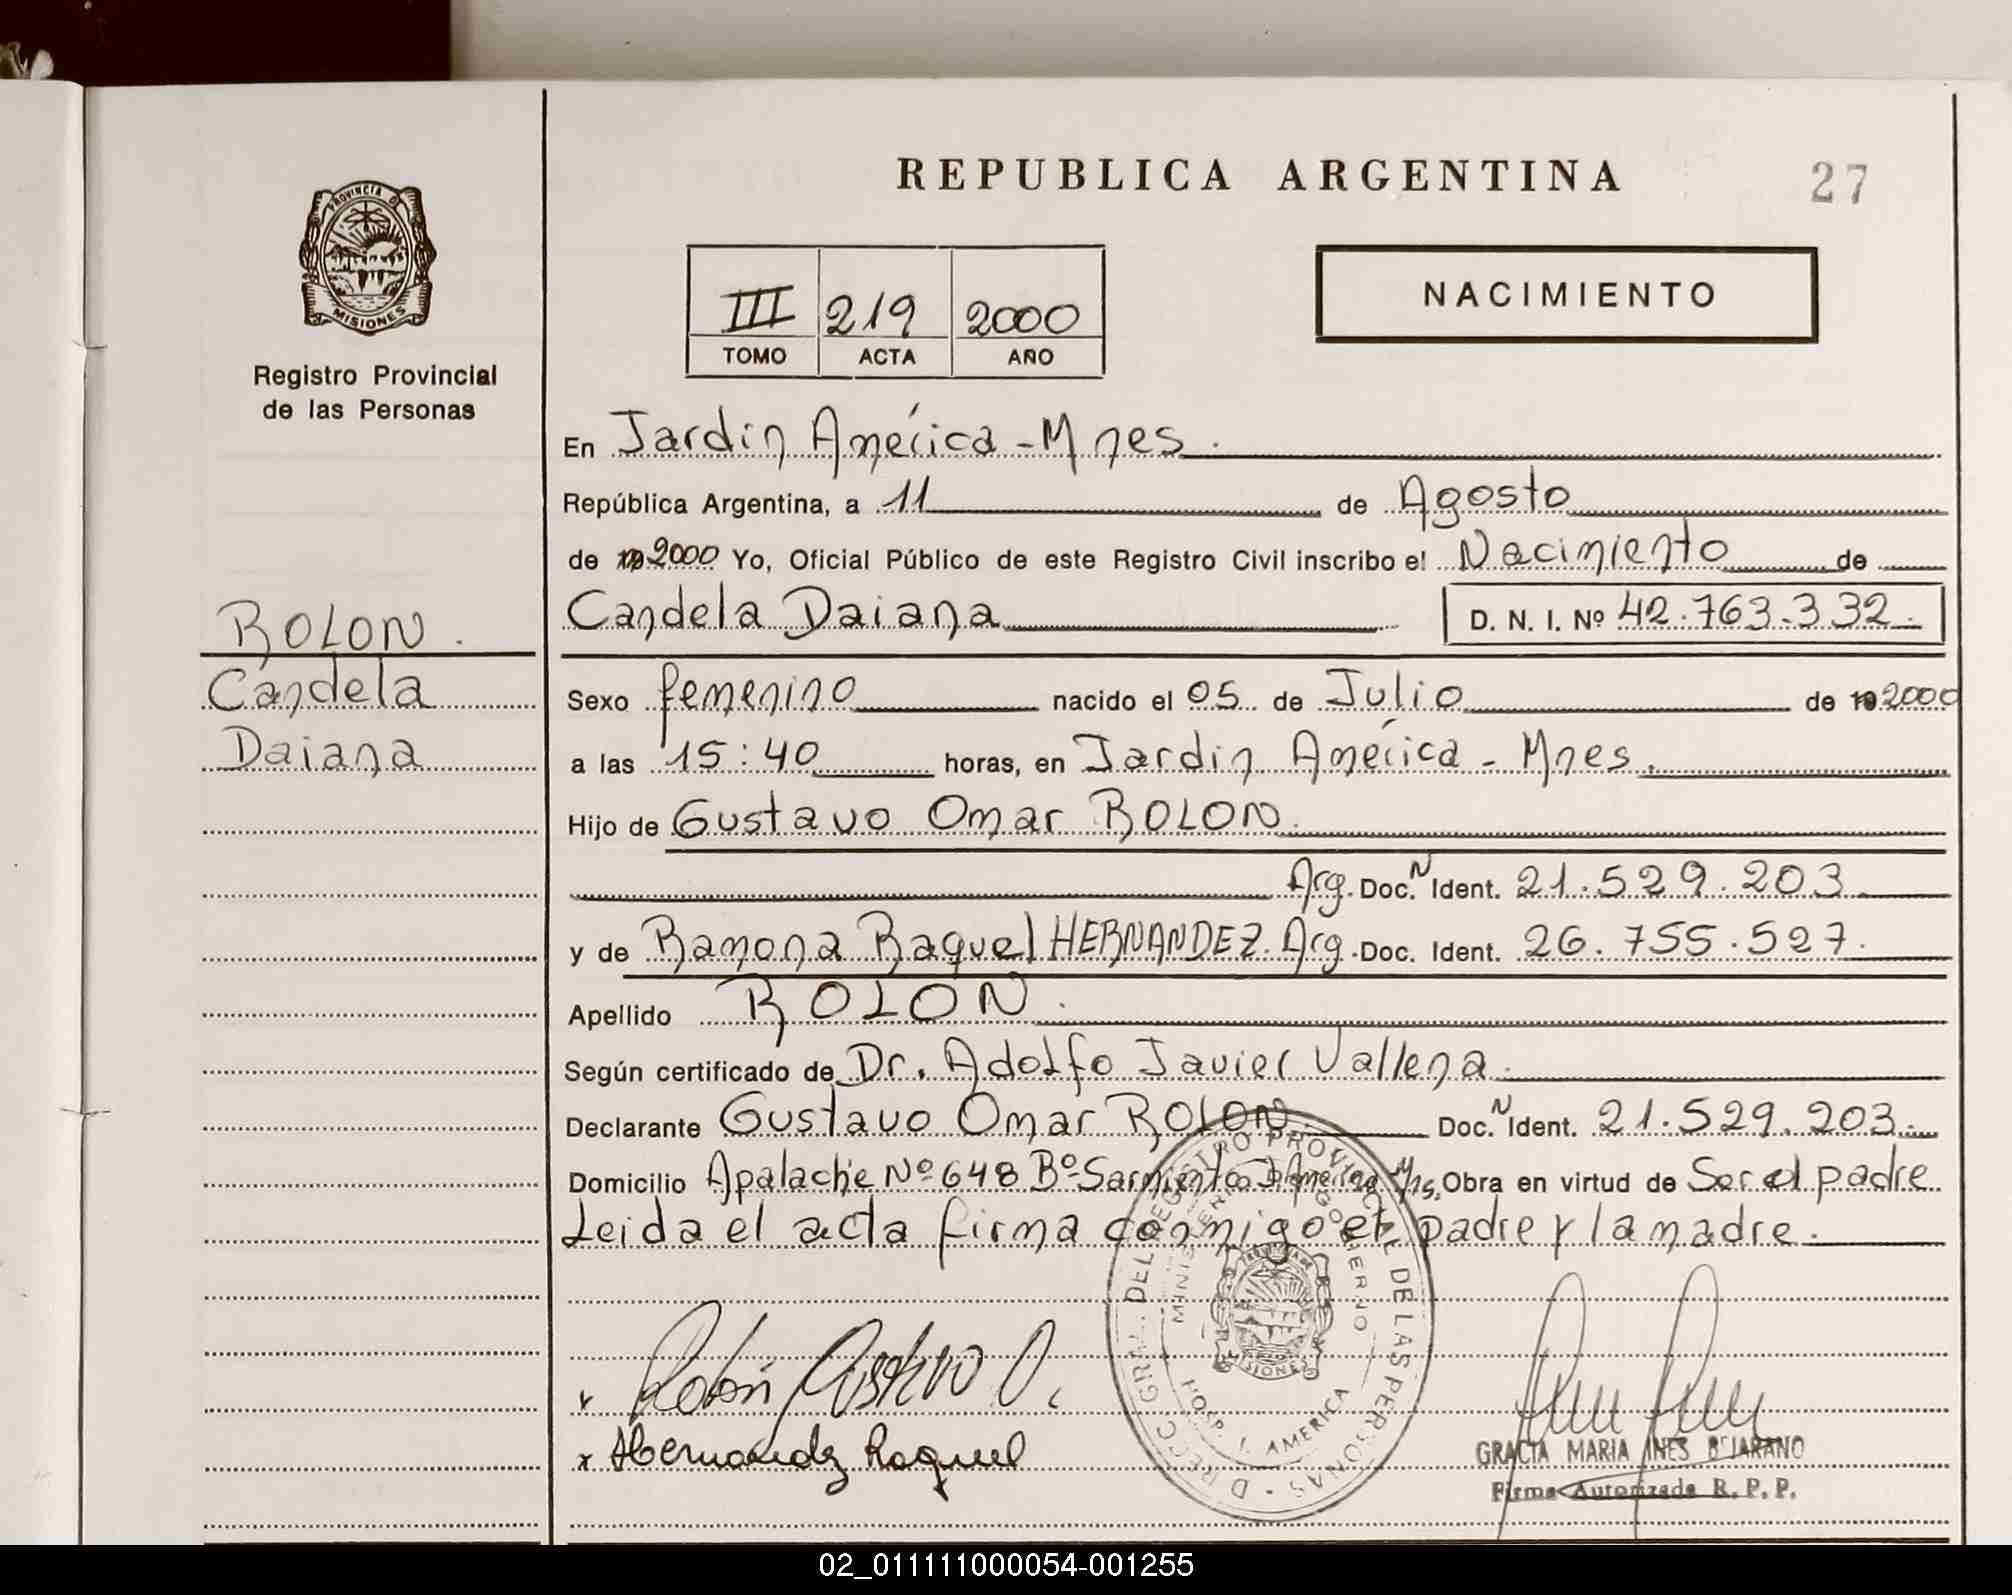 REPUBLICA ARGENTINA
27
PROVINCIA DE
MISIONES
Registro Provincial
de las Personas
III 219 2000
TOMO ACTA AÑO
NACIMIENTO
En Jardín América - Mnes.
República Argentina, a 11 de Agosto
de 2000 Yo, Oficial Público de este Registro Civil inscribo el Nacimiento de
Candela Daiana D. N. I. Nº 42.763.332.
ROLON.
Candela
Daiana
Sexo femenino nacido el 05 de Julio de 2000
a las 15:40 horas, en Jardin América - Mnes.
Hijo de Gustavo Omar ROLON.
Arg. Doc. N Ident. 21.529.203
y de Ramona Raquel HERNANDEZ. Arg. Doc. Ident. 26.755.527.
Apellido ROLON.
Según certificado de Dr. Adolfo Javier Vallena.
Declarante Gustavo Omar ROLON. Doc. N Ident. 21.529.203.
Domicilio Apalache Nº 648 Bº Sarmiento J. América Mns, Obra en virtud de Ser el padre
Leida el acta firma conmigo el padre y la madre.
DIRECC GRAL. DEL REGISTRO PROVINCIAL DE LAS PERSONAS
MINISTERIO GOBIERNO
PROVINCIA DE
MISIONES
HOSP. J. AMERICA
Rolón Gustavo O.
x Hernandez Raquel
GRACIA MARIA INES BEJARANO
Firma Autorizada R. P. P.
02_011111000054-001255